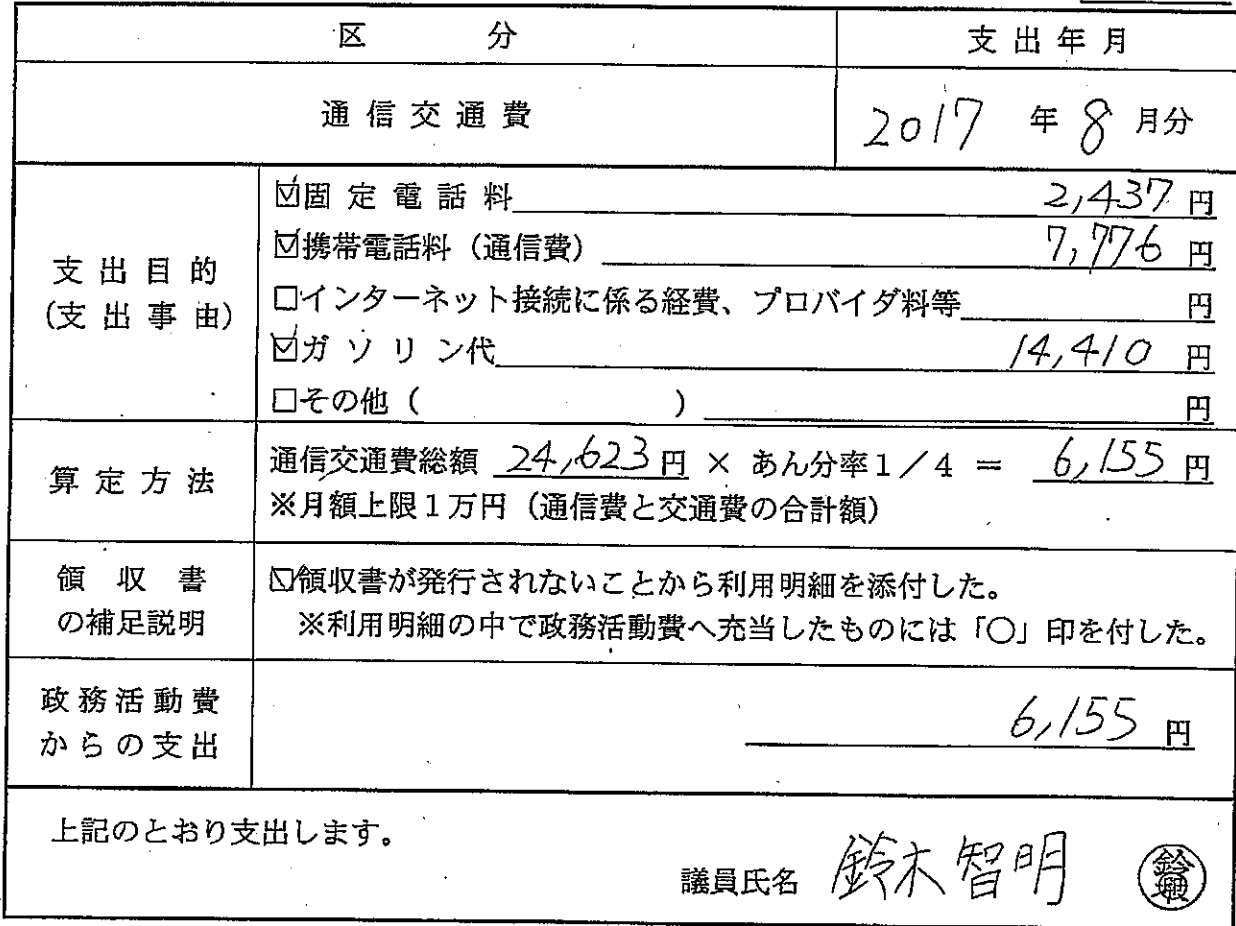 区分 支出年月
通信交通費 2017年8月分
支出目的
(支出事由)
☑固定電話料 2,437円
☑携帯電話料(通信費) 7,776円
□インターネット接続に係る経費、プロバイダ料等 円
☑ガソリン代 14,410円
□その他( ) 円
算定方法
通信交通費総額 24,623円 × あん分率1/4 = 6,155円
※月額上限1万円(通信費と交通費の合計額)
領収書
の補足説明
☑領収書が発行されないことから利用明細を添付した。
※利用明細の中で政務活動費へ充当したものには「○」印を付した。
政務活動費
からの支出
6,155円
上記のとおり支出します。
議員氏名 鈴木智明